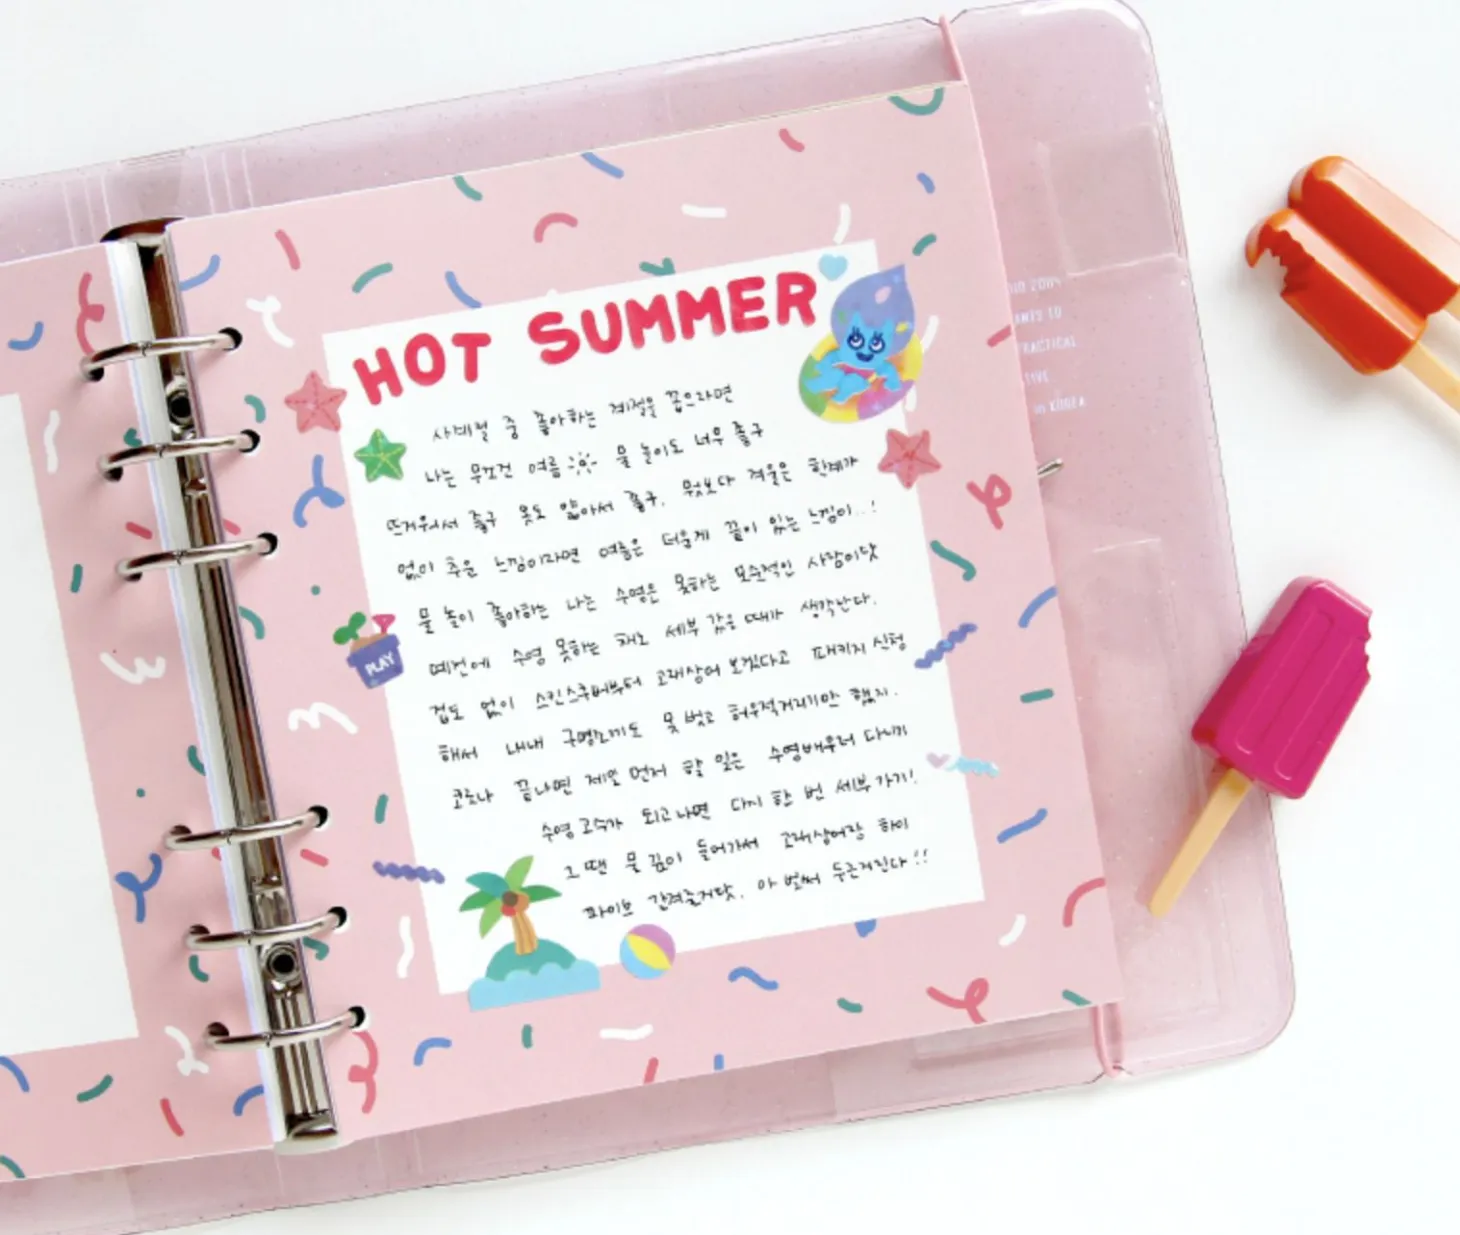 HOT SUMMER
사계절 중 좋아하는 계절을 꼽으라면
나는 무조건 여름 물놀이도 너무 좋구
뜨거워서 좋구 옷도 얇아서 좋구. 뭣보다 겨울은 한계가
없이 추운 느낌이라면 여름은 더운게 끝이 있는 느낌이..!
물놀이 좋아하는 나는 수영은 못하는 모순적인 사람이닷
예전에 수영 못하는 채로 세부 갔을 때가 생각난다.
겁도 없이 스킨스쿠버부터 고래상어 보겠다고 패키지 신청
해서 내내 구명조끼도 못 벗고 허우적거리기만 했지.
코로나 끝나면 제일 먼저 할 일은 수영배우러 다니기
수영고수가 되고나면 다시 한 번 세부가기!
그 땐 물 깊이 들어가서 고래상어랑 하이
파이브 갈겨줄거닷. 아 벌써 두근거린다!!
PLAY
PRACTICAL
in KOREA